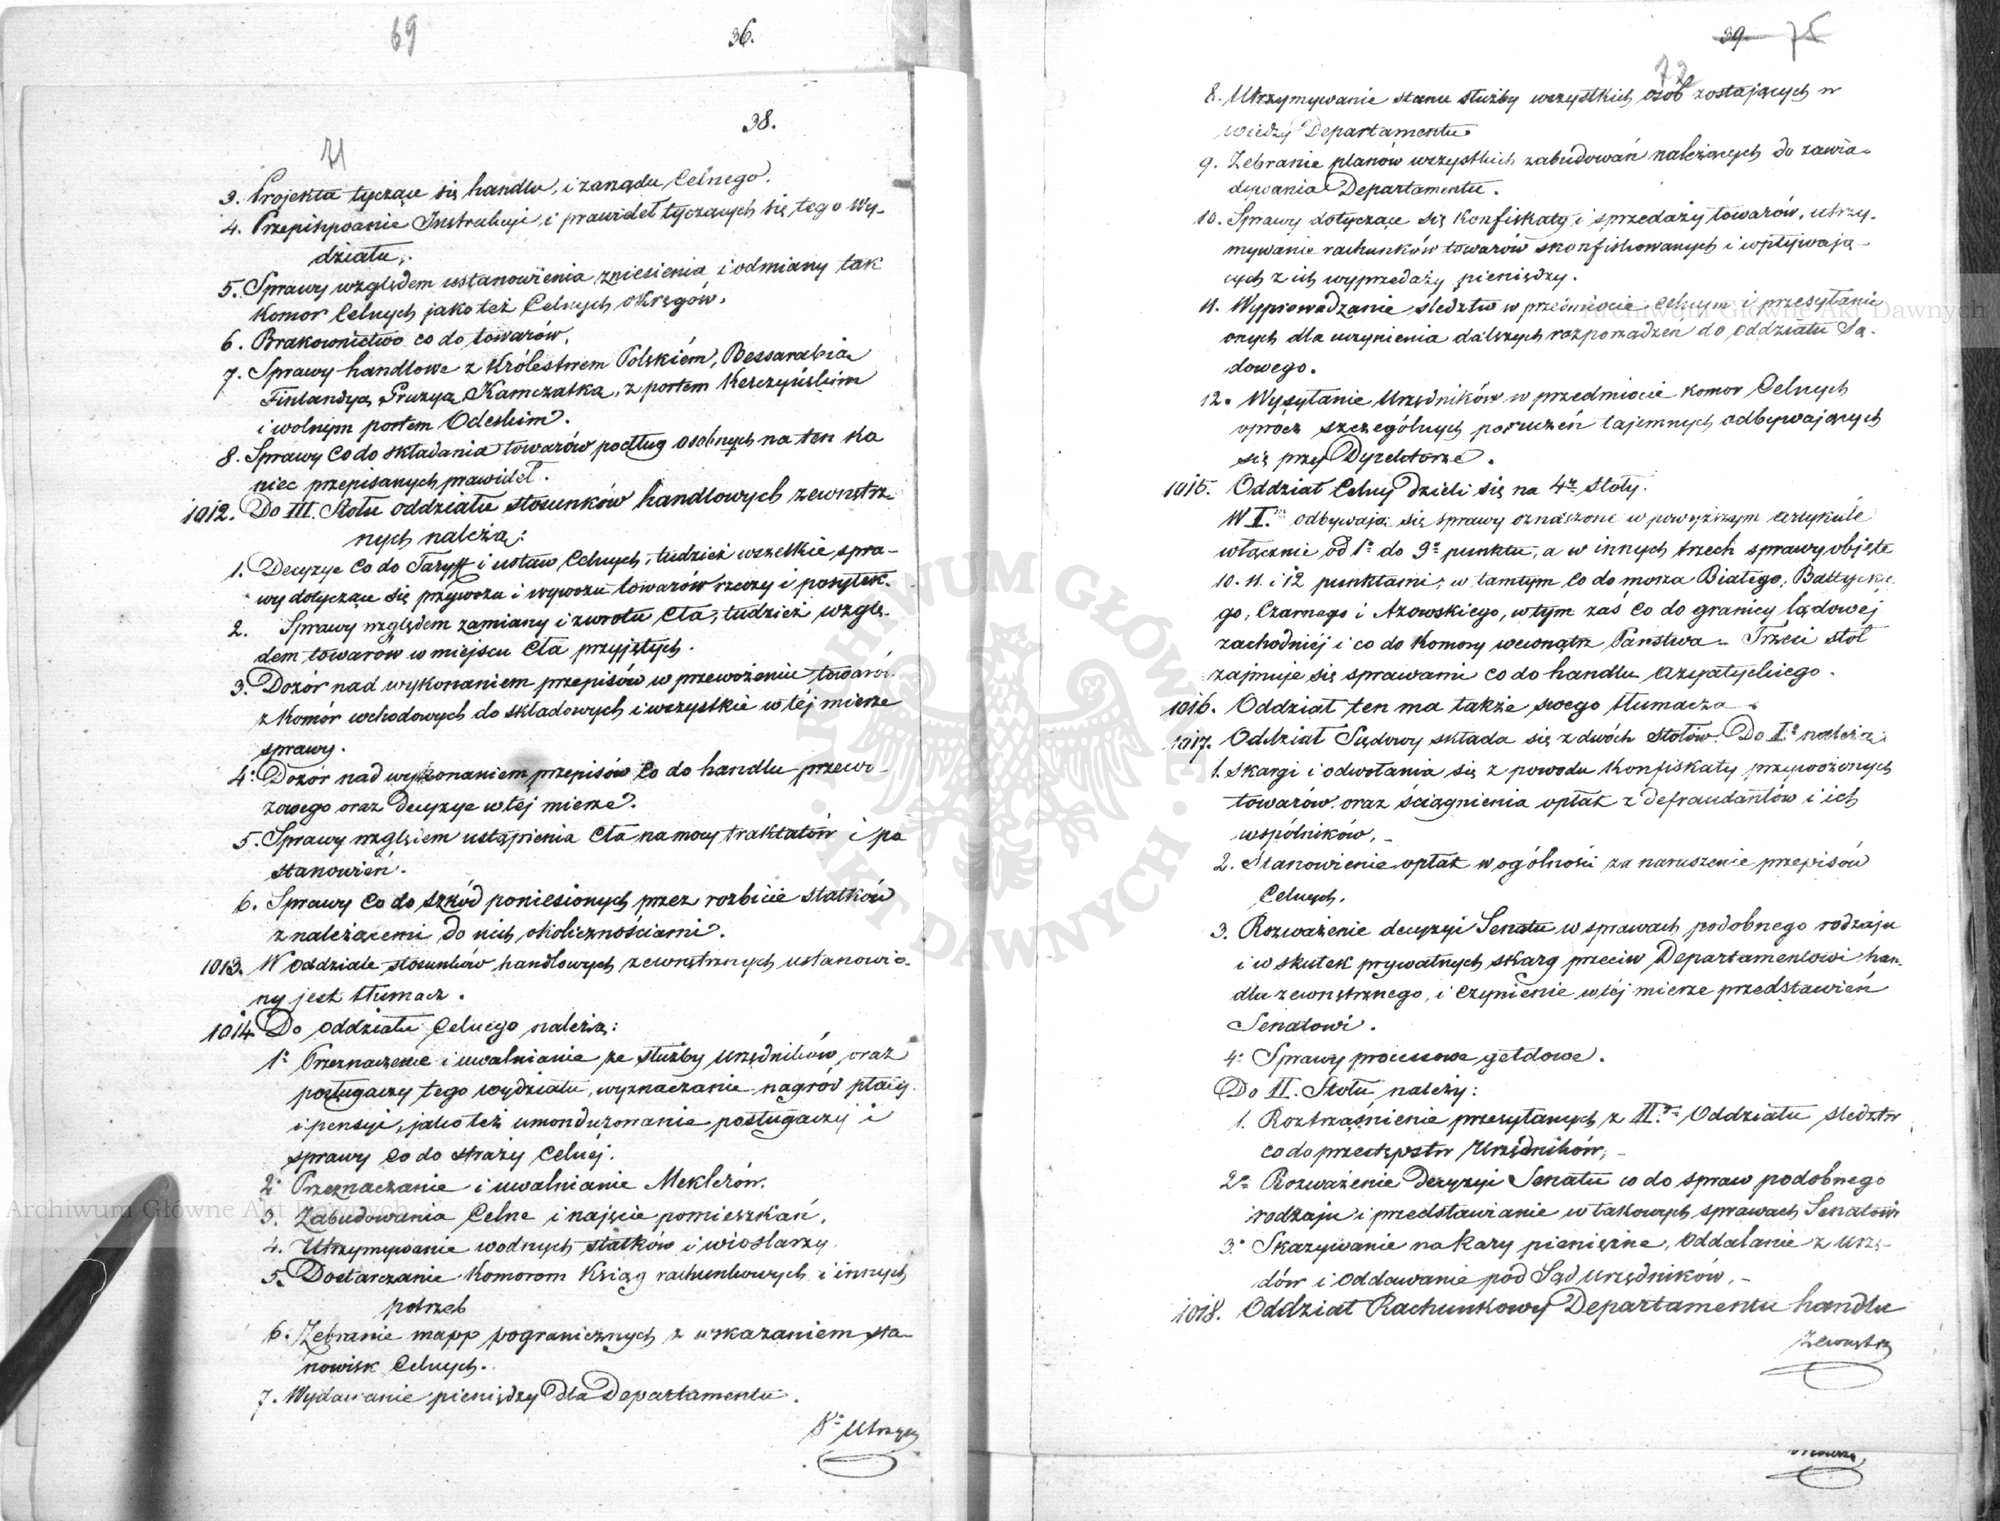 69
36.
38.
71
3. Projekta tyczące się handlu, i zarządu Celnego.
4. Przepisywanie Instrukcyi i prawideł tyczących się tego Wy-
działu,
5. Sprawy względem ustanowienia zniesienia i odmiany tak
Komor Celnych jako też Celnych okręgów.
6. Brakownictwo co do towarów.
7. Sprawy handlowe z Królestwem Polskiém, Bessarabią
Finlandyą, Gruzyą Kamczatką, z portem Kerczyńskim
i wolnym portem Odeskim.
8. Sprawy co do składania towarów podług osobnych na ten ko
niec przepisanych prawideł.
1012. Do III. Stołu oddziału stosunków handlowych zewnętrz-
nych należą:
1. Decyzye co do Taryff i ustaw Celnych, tudzież wszelkie spra-
wy dotyczące się przywozu i wywozu towarow rzeczy i posyłek.
2. Sprawy względem zamiany i zwrotu Cła, tudzież wzglę-
dem towarów w miejscu Cła przyjętych.
3. Dozór nad wykonaniem przepisów w przewożeniu towarów
z Komór wchodowych do składowych i wszystkie w téj mierze
sprawy.
4. Dozór nad wykonaniem przepisów co do handlu przewo-
zowego oraz decyzye w téj mierze.
5. Sprawy względem ustąpienia Cła na mocy traktatów i po
stanowień.
6. Sprawy co do szkód poniesionych przez rozbicie statków
z należącemi do nich okolicznościami.
1013. W oddziale stosunków handlowych zewnętrznych ustanowio-
ny jest tłumacz.
1014. Do oddziału Celnego należą:
1. Przeznaczenie i uwalnianie ze służby urzędników, oraz
posługaczy tego wydziału, wyznaczanie nagród płacy
i pensyi, jako też umondurowanie posługaczy i
sprawy co do straży Celnéj.
2. Przeznaczanie i uwalnianie Meklerów.
3. Zabudowania Celne i najęcie pomieszkań.
4. Utrzymywanie wodnych statków i wioślarzy.
5. Dostarczanie Komorom Ksiąg rachunkowych i innych
potrzeb
6. Zebranie mapp pogranicznych z wskazaniem sta-
nowisk Celnych.
7. Wydawanie pieniędzy dla Departamentu.
8. Utrzym
39. 75
72
8. Utrzymywanie stanu służby wszystkich osób zostających w
wiedzy Departamentu.
9. Zebranie planów wszystkich zabudowań należących do zawia-
dywania Departamentu.
10. Sprawy dotyczące się Konfiskaty i sprzedaży towarów, utrzy-
mywanie rachunków towarów skonfiskowanych i wpływają-
cych z ich wyprzedaży pieniędzy.
11. Wyprowadzanie śledztw w przedmiocie Celnym i przesyłanie
onych dla uczynienia dalszych rozporządzeń do oddziału Są-
dowego.
12. Wysyłanie Urzędników w przedmiocie Komor Celnych
oprócz szczególnych poruczeń tajemnych odbywających
się przy Dyrektorze.
1015. Oddział Celny dzieli się na 4. Stoły.
W I. odbywają się sprawy oznaczone w powyższym artykule
włącznie od 1 do 9 punktu, a w innych trzech sprawy objęte
10. 11. i 12 punktami; w tamtym co do morza Białego, Bałtyckie
go, Czarnego i Azowskiego, w tym zaś co do granicy lądowéj
zachodniéj i co do Komory wewnątrz Państwa. Trzeci stół
zajmuje się sprawami co do handlu azyatyckiego.
1016. Oddział ten ma także swego tłumacza.
1017. Oddział Sądowy składa się z dwóch stołów. Do I należą:
1. Skargi i odwołania się z powodu Konfiskaty przywożonych
towarów oraz ściągnienia opłat z defraudantów i ich
wspólników,
2. Stanowienie opłat w ogólności za naruszenie przepisów
Celnych.
3. Rozważenie decyzyi Senatu w sprawach podobnego rodzaju
i w skutek prywatnych skarg przeciw Departamentowi han-
dlu zewnętrznego, i czynienie w téj mierze przedstawień
Senatowi.
4. Sprawy processowe giełdowe.
Do II. Stołu należy:
1. Roztrząśnienie przesyłanych z II. Oddziału śledztw
co do przestępstw Urzędników,
2. Rozważenie decyzyi Senatu co do spraw podobnego
rodzaju i przedstawianie w takowych sprawach Senatowi
3. Skazywanie na Kary pieniężne, oddalanie z urzę-
dów i oddawanie pod Sąd Urzędników,
1018. Oddział Rachunkowy Departamentu handlu
Zewnętrz
ARCHIWUM GŁÓWNE AKT DAWNYCH
Archiwum Główne Akt Dawnych
Archiwum Główne Akt Dawnych